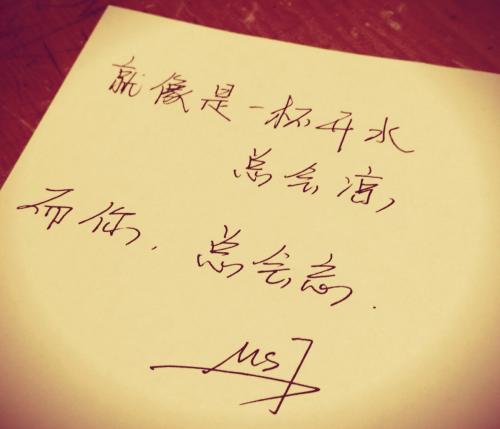 就像是一杯开水
总会凉,
而你.总会忘.
MsJ